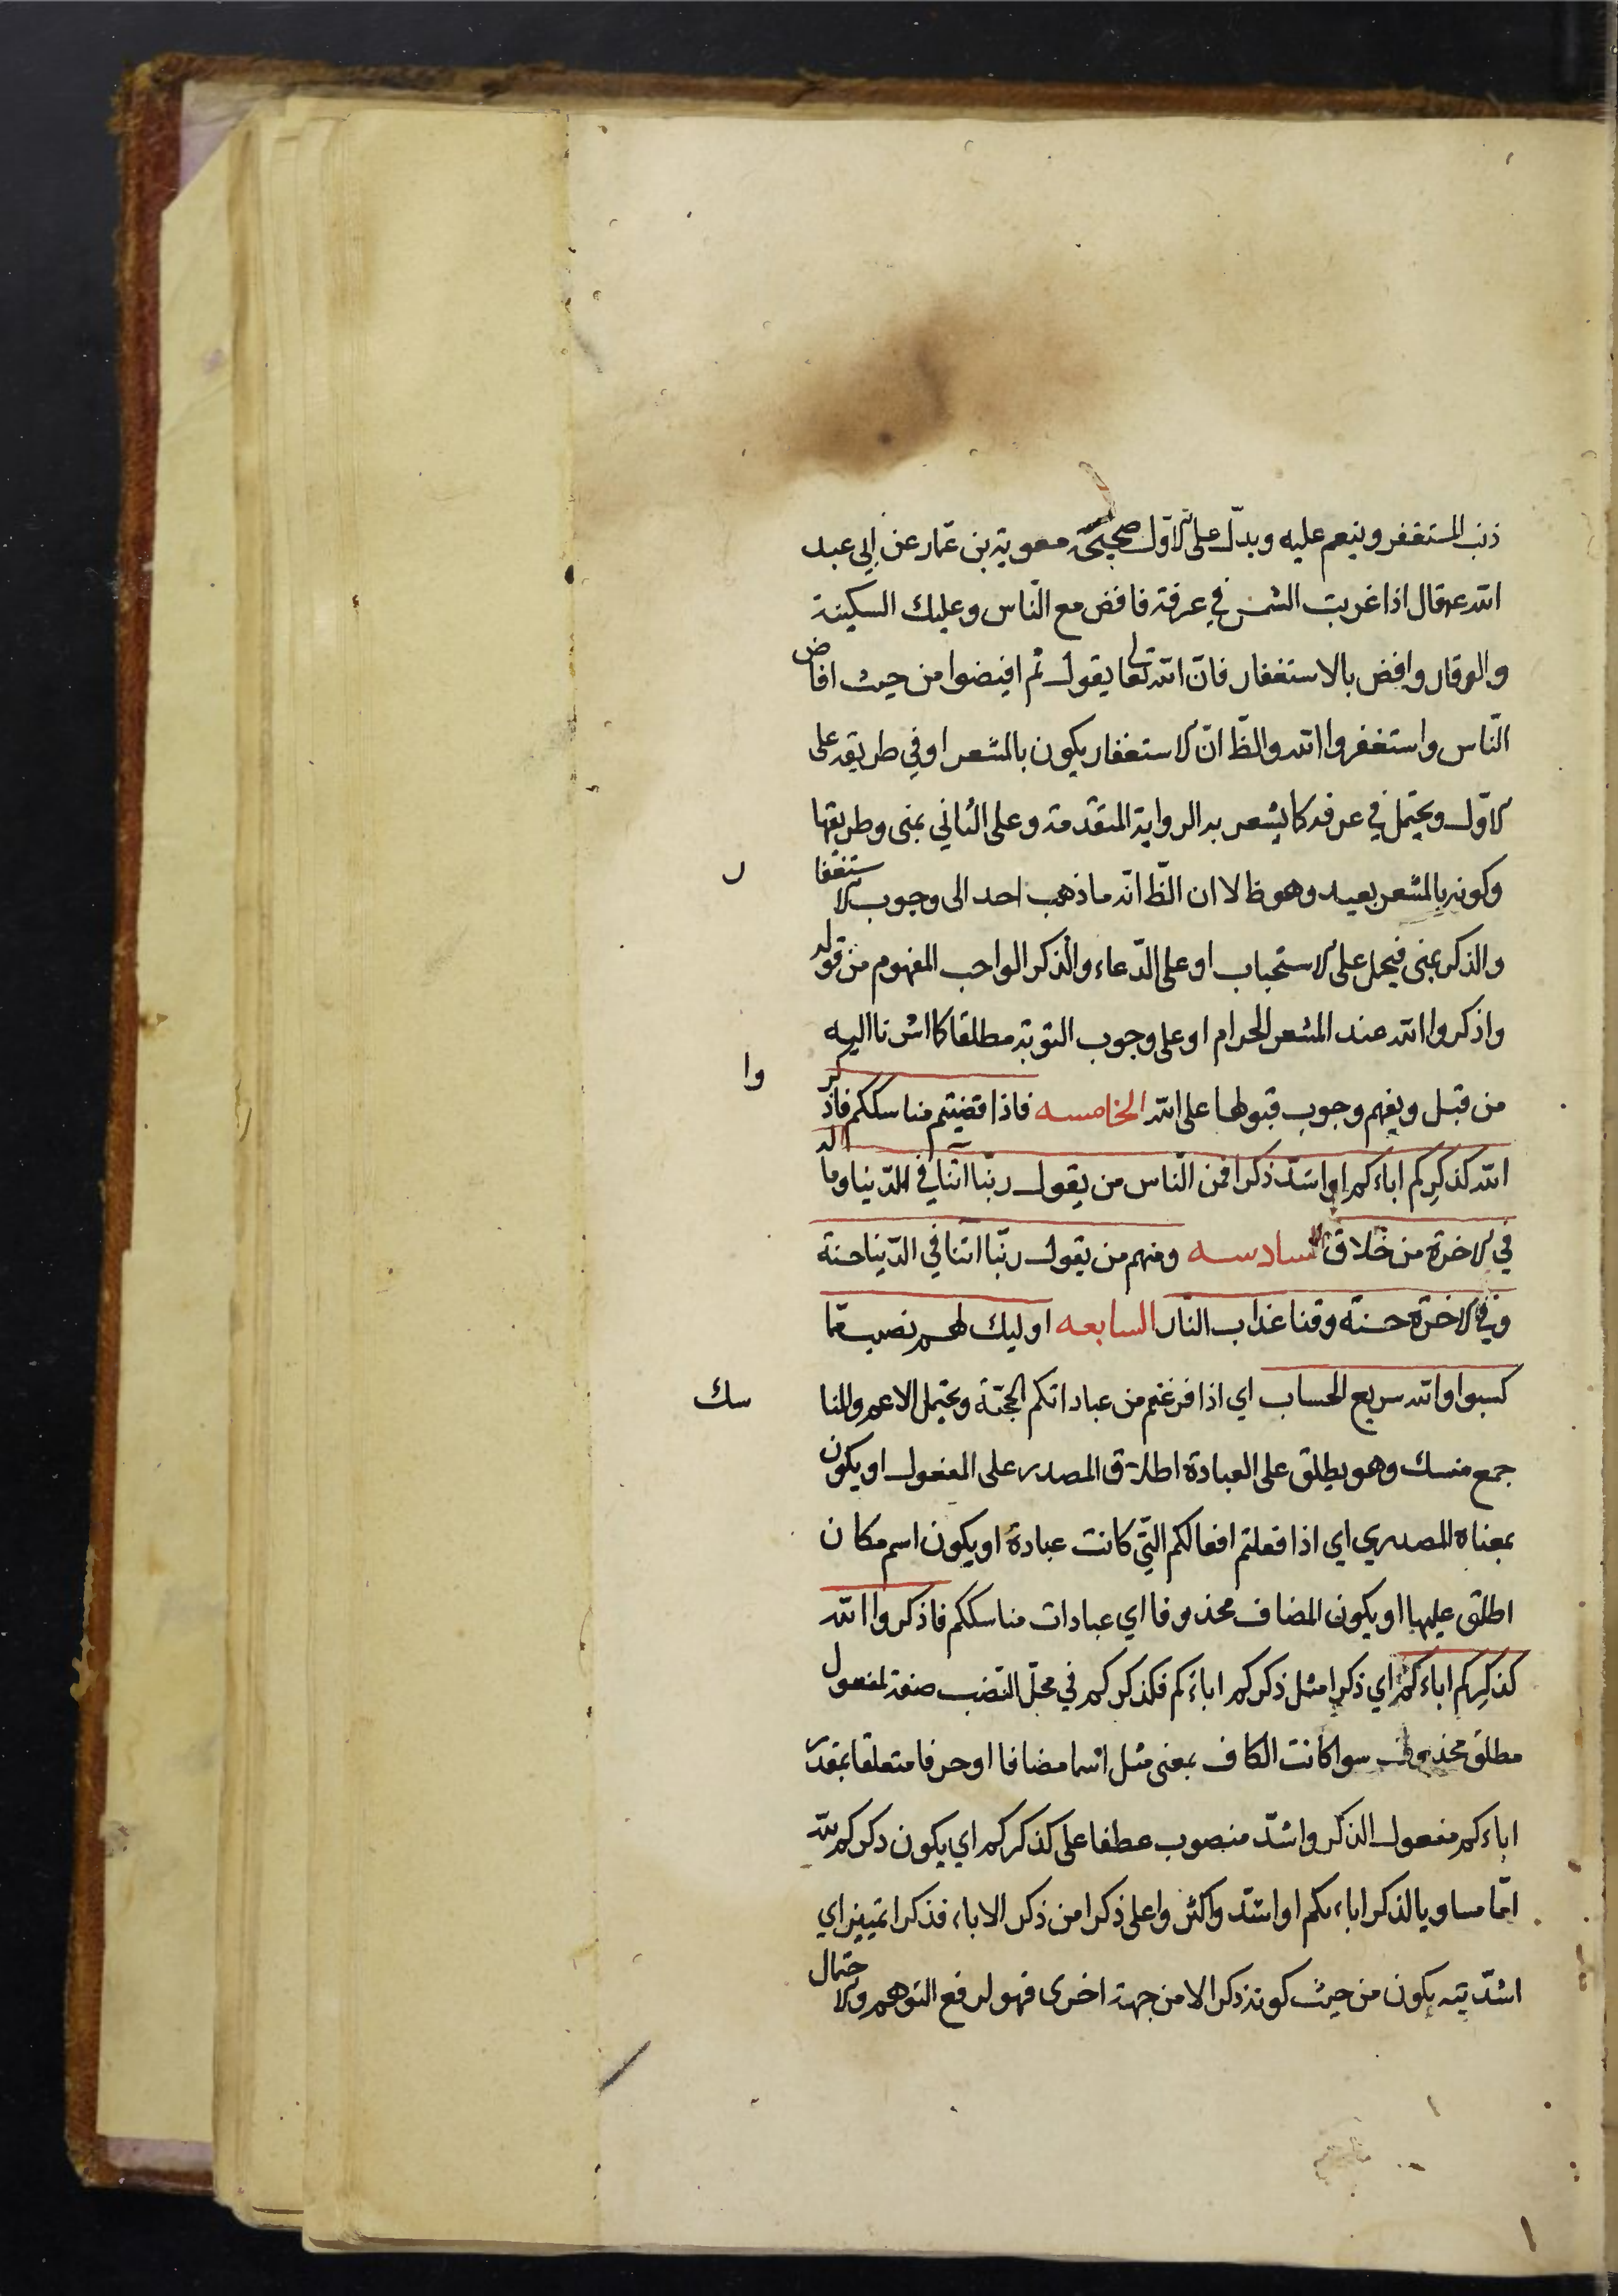 ذنب المستغفر وينعم عليه ويدلّ على الاوّل صحيحة معوية بن عمّار عن ابي عبد
الله ع قال اذا غربت الشمس في عرفة فافض مع النّاس وعليك السكينة
والوقار وافض بالاستغفار فانّ الله تعالى يقول ثم افيضوا من حيث افاض
النّاس واستغفروا الله والظّ انّ الاستغفار يكون بالمشعر او في طريقه على
الاوّل ويحتمل في عرفه كما يشعر به الرواية المتقدمة وعلى الثاني بمنى وطريقها
وكونه بالمشعر بعيد وهو ظ لا ان الظّ انّه ما ذهب احد الى وجوب الاستغفا ر
والذكر بمنى فيحمل على الاستحباب او على الدّعاء والذكر الواجب المفهوم من قوله
واذكروا الله عند المشعر الحرام او على وجوب التوبة مطلقا كما اشرنا اليه
من قبل ويفهم وجوب قبولها على الله الخامسه فاذا قضيتم مناسككم فاذكر وا
الله كذكركم اباءكم او اشدّ ذكرا فمن النّاس من يقول ربّنا اتنا في الدّنيا وما له
في الاخرة من خلاق السادسه ومنهم من يقول ربّنا اتنا في الدّنيا حسنة
وفي الاخرة حسنة وقنا عذاب النّار السابعه اوليك لهم نصيب ممّا
كسبوا والله سريع الحساب اي اذا فرغتم من عباداتكم الحجّة ويحتمل الاعم والمنا سك
جمع منسك وهو يطلق على العبادة اطلاق المصدر على المفعول او يكون
بمعناه المصدري اي اذا فعلتم افعالكم الّتي كانت عبادة او يكون اسم مكان
اطلق عليها او يكون المضاف محذوفا اي عبادات مناسككم فاذكروا الله
كذكركم اباءكم اي ذكرا مثل ذكركم اباءكم فكذكركم في محلّ النّصب صفة لمفعول
مطلق محذوف سوا كانت الكاف بمعنى مثل اسما مضافا او حرفا متعلقا بمقدّر
اباءكم مفعول الذكر واشدّ منصوب عطفا على كذكركم اي يكون ذكركم لله
امّا مساويا لذكر اباءكم او اشدّ واكثر واعلى ذكرا من ذكر الاباء فذكرا تمييز اي
اشدّيته يكون من حيث كونه ذكرا لا من جهة اخرى فهو لرفع التوهم والاحتمال